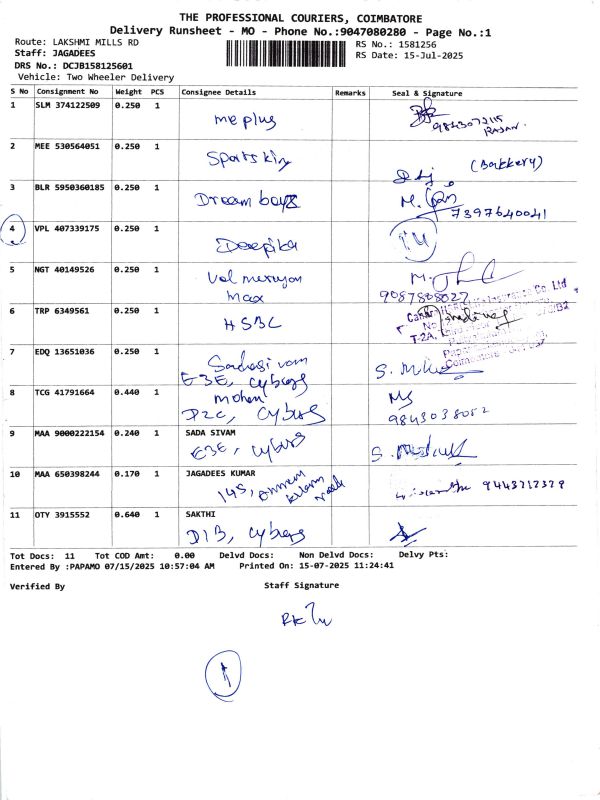 THE PROFESSIONAL COURIERS, COIMBATORE
Delivery Runsheet - MO - Phone No.:9047080280 - Page No.:1
Route: LAKSHMI MILLS RD
Staff: JAGADEES
DRS No.: DCJB158125601
Vehicle: Two Wheeler Delivery
RS No.: 1581256
RS Date: 15-Jul-2025
S No Consignment No Weight PCS Consignee Details Remarks Seal & Signature
1 SLM 374122509 0.250 1 me plus 9843072115
RAJAN.
2 MEE 530564051 0.250 1 Sports King (Bakkery)
3 BLR 5950360185 0.250 1 Dream boyz
7397640041
4 VPL 407339175 0.250 1 Deepika
5 NGT 40149526 0.250 1
max 9087808027
6 TRP 6349561 0.250 1 HSBC
7 EDQ 13651036 0.250 1 Sadasivam
E3E, Cyberg
8 TCG 41791664 0.440 1 mohan
D2C, Cyberg 9843038052
9 MAA 9000222154 0.240 1 SADA SIVAM
E3E, Cyberg
10 MAA 650398244 0.170 1 JAGADEES KUMAR
145,
11 OTY 3915552 0.640 1 SAKTHI
D1B, Cyberg
Tot Docs: 11 Tot COD Amt: 0.00 Delvd Docs: Non Delvd Docs: Delvy Pts:
Entered By :PAPAMO 07/15/2025 10:57:04 AM Printed On: 15-07-2025 11:24:41
Verified By Staff Signature